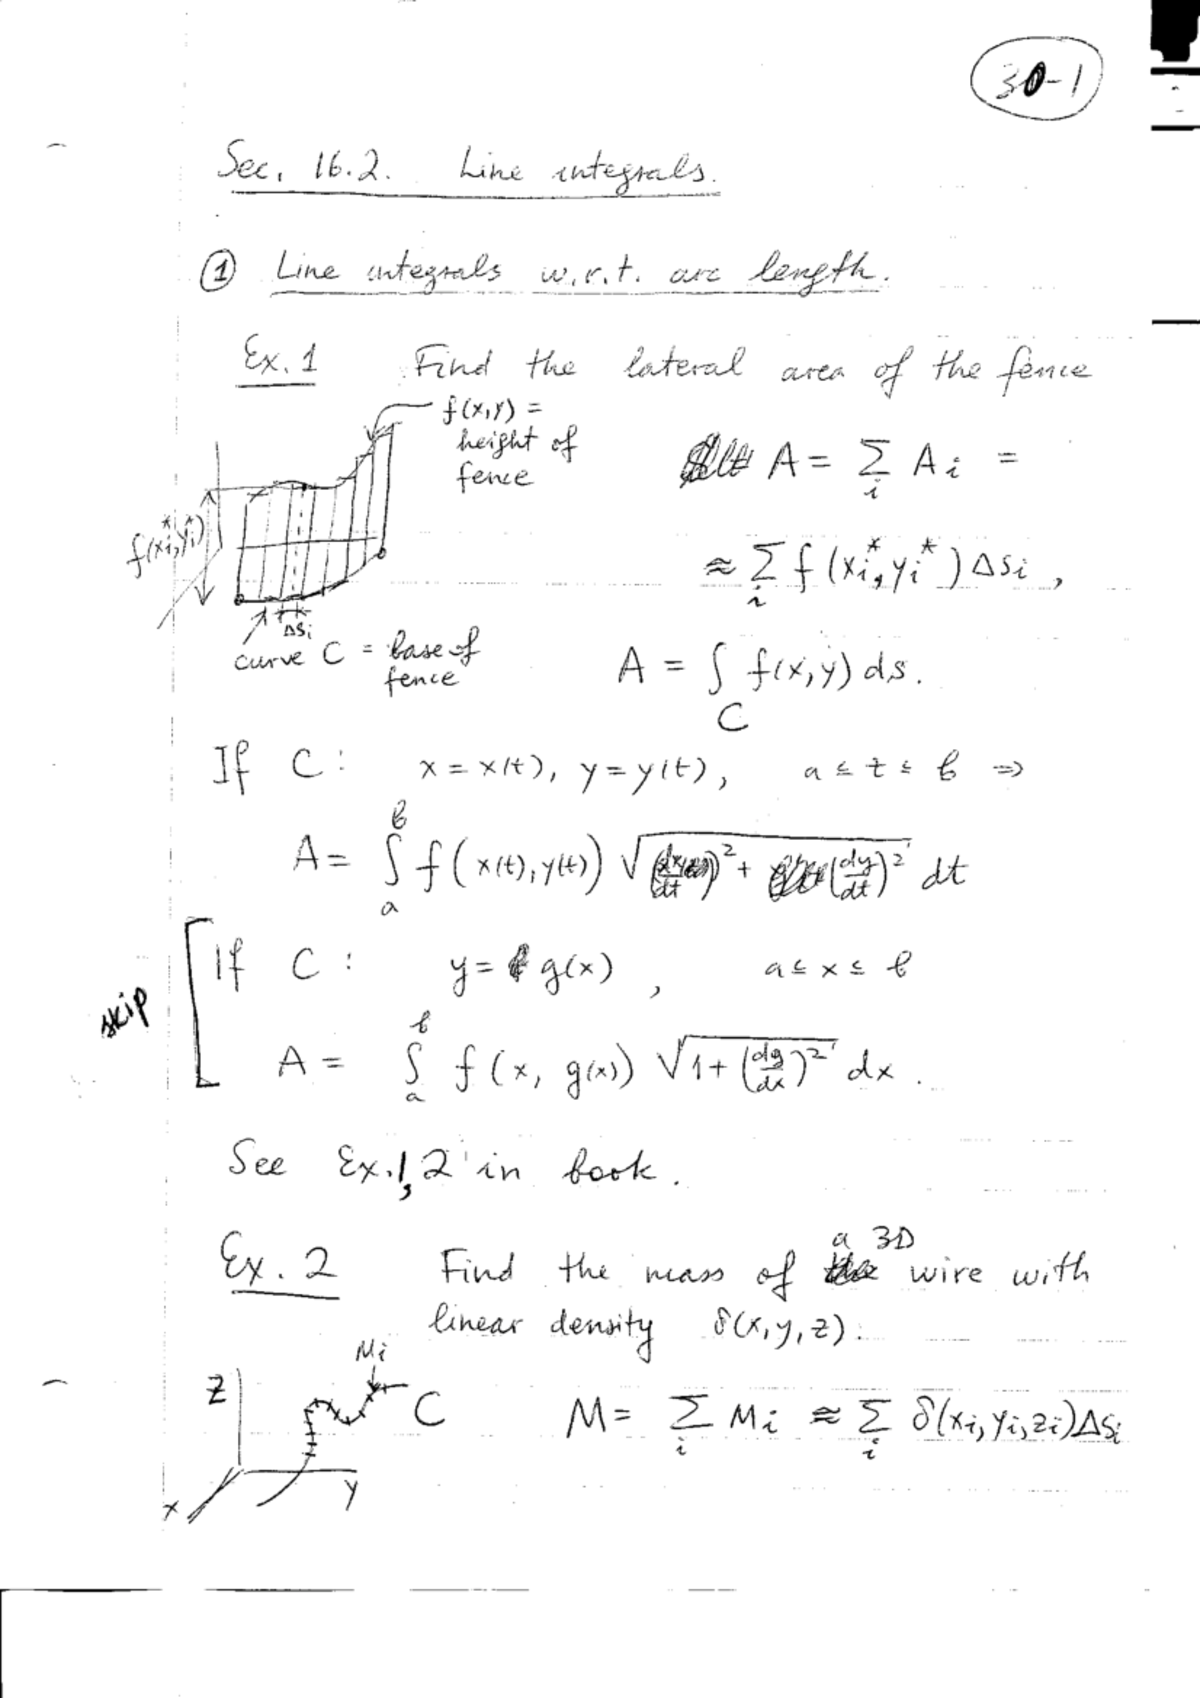 30-1
Sec. 16.2. Line integrals.
① Line integrals w.r.t. arc length.
Ex. 1 Find the lateral area of the fence
f(x,y) =
height of
fence
A = ∑_i A_i =
f(x_i^*, y_i^*)
≈ ∑_i f(x_i^*, y_i^*) Δs_i ,
Δs_i
curve C = base of
fence
A = ∫_C f(x,y) ds.
If C: x = x(t), y = y(t), a ≤ t ≤ b ⇒
A = ∫_a^b f(x(t), y(t)) √((dx/dt)^2 + (dy/dt)^2) dt
skip
If C: y = g(x) , a ≤ x ≤ b
A = ∫_a^b f(x, g(x)) √(1 + (dg/dx)^2) dx .
See Ex. 1, 2 in book.
Ex. 2 Find the mass of a 3D wire with
linear density δ(x,y,z).
M_i
z
C
M = ∑_i M_i ≈ ∑_i δ(x_i, y_i, z_i) Δs_i
x
y